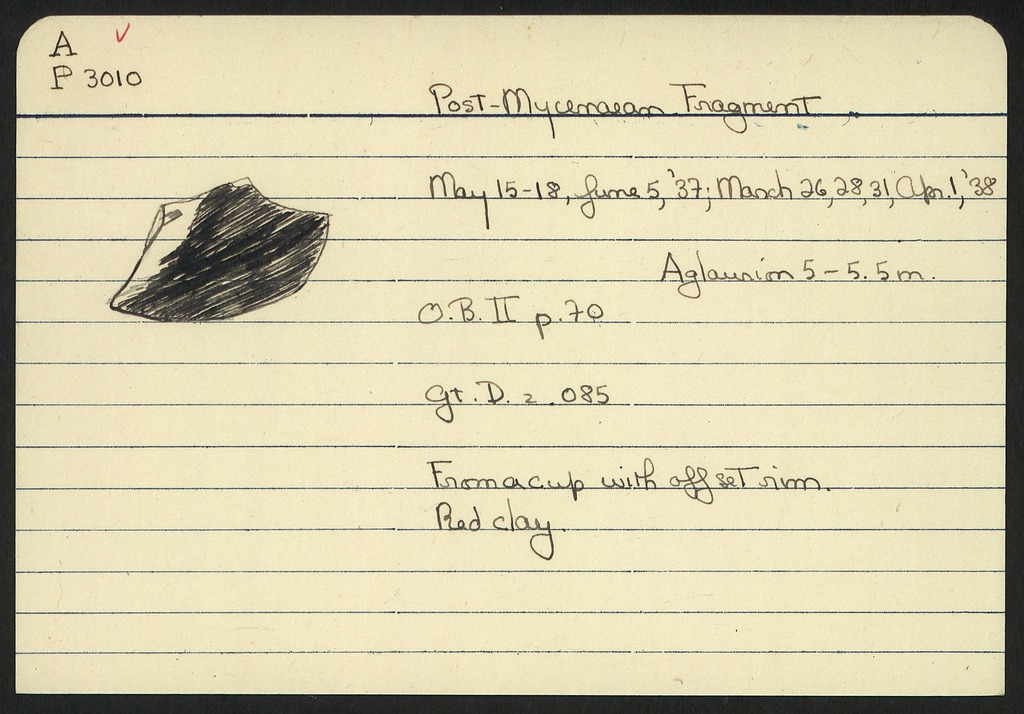 A
P 3010
Post-Mycenaean Fragment
May 15-18, June 5, '37; March 26, 28, 31, Apr. 1, '38
Aglaurion 5-5.5 m.
O.B. II p. 70
Gt. D. = .085
From a cup with offset rim.
Red clay.